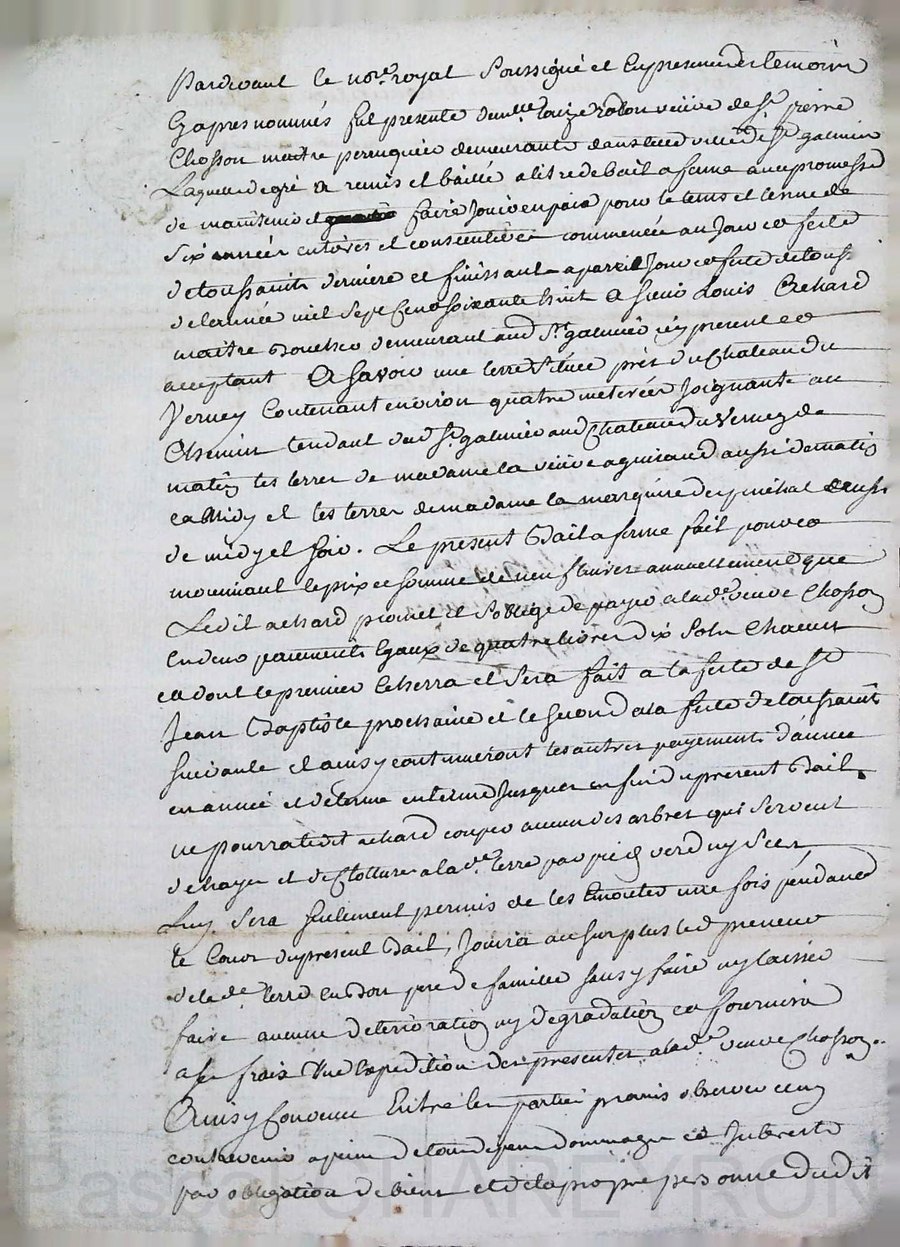 Pardevant le nore. royal Soussigné et En presence des temoins
Cy apres nommés fut presente demlle. Louize veuve de Sr. pierre
Chosson maitre perruquier demeurante dans la ville de St. galmier
Laquelle de gré a remis et baillé a titre de bail a ferme avec promesse
de maintenir et faire Jouir en paix pour le tems et terme de
Six années entieres et consecutives commencée au Jour et feste
de toussaints derniere et finissant a pareil Jour et feste de touss.
de l'année mil Sept Cens Soixante huit a Sieur Louis Achard
maitre Boucher demeurant aud St. galmier icy present et
acceptant A Savoir une terre Située près du Chateau du
Verney Contenant environ quatre meterées Joignant au
Chemin tendant dud St. galmier aud Chateau du Verney de
matin les terres de madame la veuve aguiraud aussi de matin
et les terres de madame la marquise de
de midy et Soir. Le present Bail a ferme fait pour et
moyennant le prix et somme de neuf livres annuellement que
Ledit achard promet et S'oblige de payer a lade. veuve Chosson
En deux paiements Egaux de quatre livres dix Sols Chacun
et dont le premier Echerra et Sera fait a la feste de St
Jean Baptiste prochaine et le Second a la feste de toussaints
Suivante et ainsy continueront les autres payements d'année
en année et de terme en terme Jusques en fin du present Bail.
ne pourra ledit achard couper aucun des arbres qui Servent
de hayes et de Clotture a lade. terre par pied verd ny Sec
Luy Sera Seulement permis de les Emonter une fois pendant
le Cour du present Bail, Jouira au Surplus led preneur
de lade. terre en Bon pere de famille Sans y faire ny laisser
faire aucune deterioration ny degradation et fournira
a Ses frais Une Expedition des presentes a lade. veuve Chosson.
Ainsy Convenu Entre les parties promis observer
contrevenir a peine de tous depens dommages et Interests
par obligation de biens et de la propre personne dudit
Pascal CHAREYRON